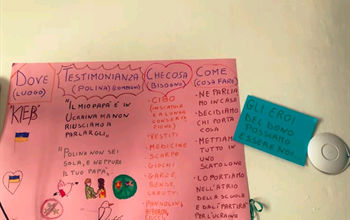 DOVE
(LUOGO)
"KIEB"
TESTIMONIANZA
(POLINA)
"IL MIO PAPA' È IN
UCRAINA MA NON
RIUSCIAMO A
PARLARGLI."
"POLINA NON SEI
SOLA, E NEPPURE
IL TUO PAPA'."
CHE COSA
(BISOGNO)
• CIBO
• VESTITI
• MEDICINE
SCARPE
GIOCHI
• GARZE,
BENDE,
CEROTTI
• PANNOLINI
COME
(COSA FARE)
• NE PARLIA
MO IN CASA
• DECIDIAMO
CHI PORTA
COSA
• METTIAMO
TUTTO IN
UNO
SCATOLONE
• LO PORTIAMO
NELL'ATRIO
DELLA SCUOLA
E DA LÌ PARTIRA'
PER L'UCRAINA
GLI EROI
DEL DONO
POSSIAMO
ESSERE NOI